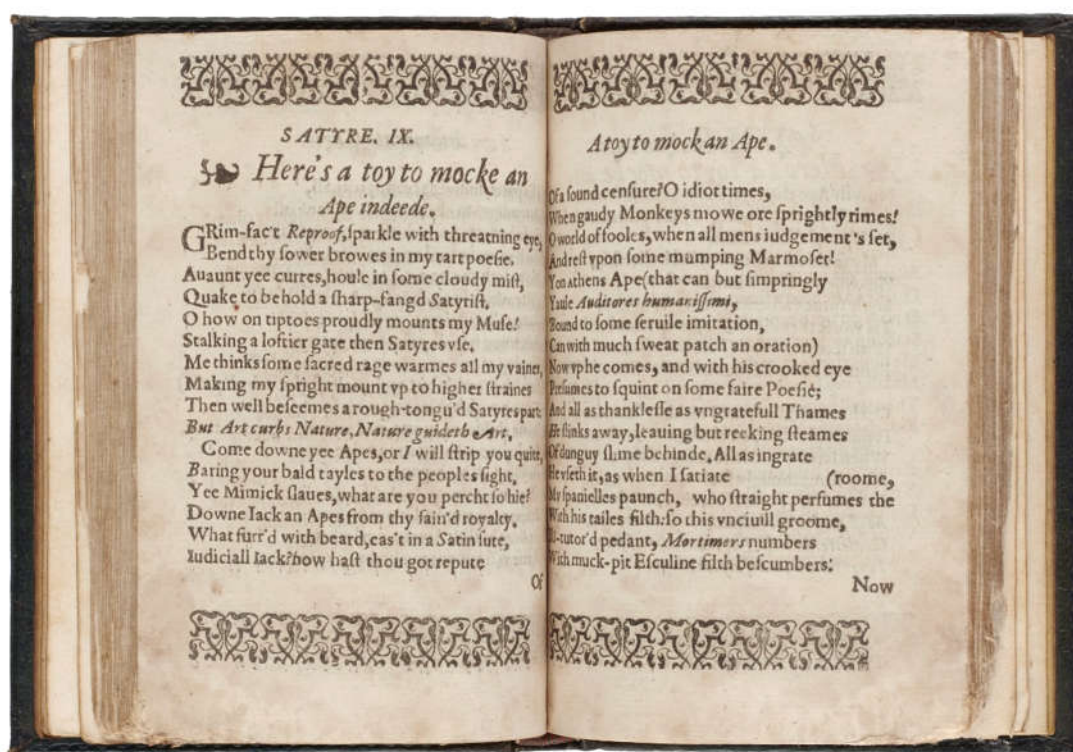 SATYRE. IX.
Here's a toy to mocke an
Ape indeede.
GRim-fac't Reproof, ſparkle with threatning eye,
Bend thy ſower browes in my tart poeſie.
Auaunt yee curres, houle in ſome cloudy miſt,
Quake to behold a ſharp-fangd Satyriſt.
O how on tiptoes proudly mounts my Muſe!
Stalking a loftier gate then Satyres vſe.
Me thinks ſome ſacred rage warmes all my vaines,
Making my ſpright mount vp to higher ſtraines
Then well beſeemes a rough-tongu'd Satyres part:
But Art curbs Nature, Nature guideth Art.
Come downe yee Apes, or I will ſtrip you quite,
Baring your bald tayles to the peoples ſight,
Yee Mimick ſlaues, what are you percht ſo hie?
Downe Iack an Apes from thy fain'd royalty.
What furr'd with beard, cas't in a Satin ſute,
Iudiciall Iack? how haſt thou got repute
Of
A toy to mock an Ape.
Of a ſound cenſure? O idiot times,
When gaudy Monkeys mowe ore ſprightly rimes!
O world of fooles, when all mens iudgement's ſet,
And reſt vpon ſome mumping Marmoſet!
Yon Athens Ape (that can but ſimpringly
Yaule Auditores humaniſſimi,
Bound to ſome ſeruile imitation,
Can with much ſweat patch an oration)
Now vp he comes, and with his crooked eye
Preſumes to ſquint on ſome faire Poeſie;
And all as thankleſſe as vngratefull Thames
He ſlinks away, leauing but reeking ſteames
Of dunguy ſlime behinde. All as ingrate
He vſeth it, as when I ſatiate (roome,
My ſpanielles paunch, who ſtraight perfumes the
With his tailes filth: ſo this vnciuill groome,
Ill-tutor'd pedant, Mortimers numbers
With muck-pit Eſculine filth beſcumbers:
Now